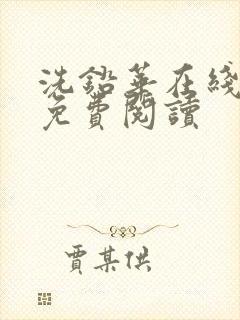 洗鉛華在綫
免費閱讀
賈某供